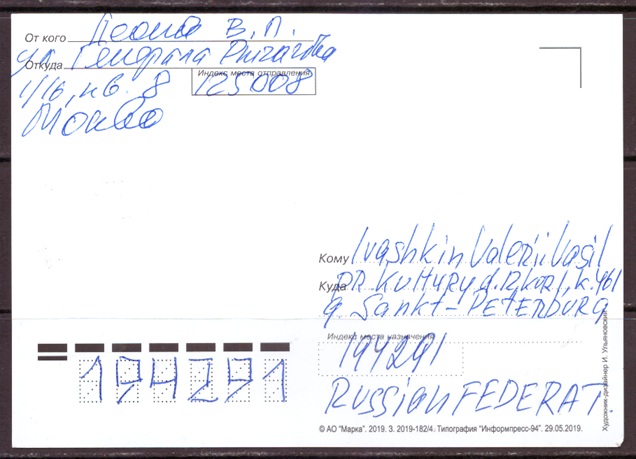 От кого Леонов В. П.
Откуда ул. Генерала
Индекс места отправления
1/16, кв. 8 125008
Москва
Кому Ivashkin Valerii Vasil
Куда PR. KULTURY d. 12, KOR 1, K. 461
g Sankt-PETERBURG
Индекс места назначения
194291
194291
RUSSiON FEDERAT
© АО "Марка". 2019. З. 2019-182/4. Типография "Информпресс-94". 29.05.2019.
Художник-дизайнер И. Ульяновский